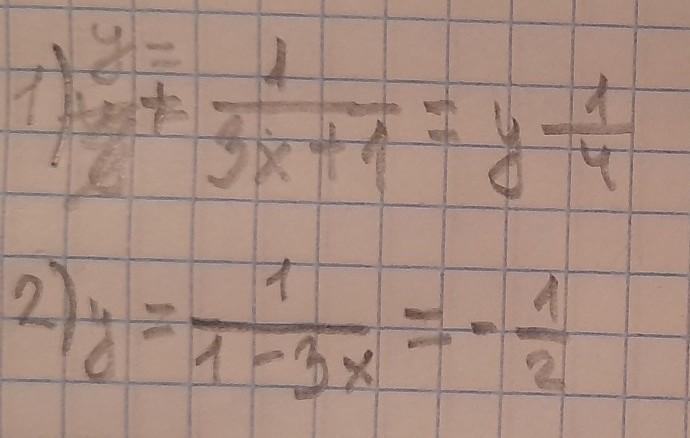 1) y = 1/(3x+1) = y 1/4
2) y = 1/(1-3x) = -1/2